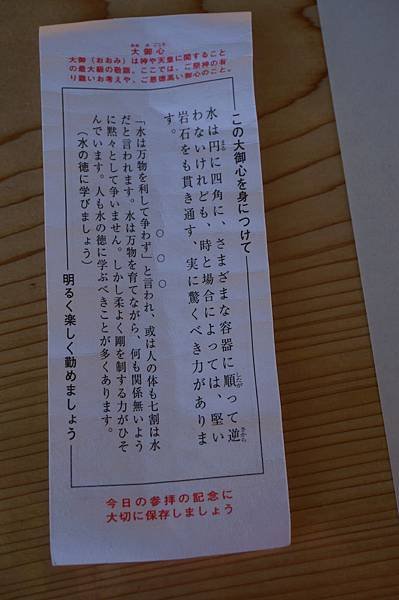 おお み ごころ
大御心
大御（おおみ）は神や天皇に関すること
の最大級の敬語。ここでは、ご祭神の有
り難いお考えや、ご恩徳高い御心のこと。
この大御心を身につけて
水は円に四角に、さまざまな容器に順って逆
わないけれども、時と場合によっては、堅い
岩石をも貫き通す、実に驚くべき力がありま
す。
○ ○ ○
「水は万物を利して争わず」と言われ、或は人の体も七割は水
だと言われます。水は万物を育てながら、何も関係無いよう
に黙々として争いません。しかし柔よく剛を制する力がひそ
んでいます。人も水の徳に学ぶべきことが多くあります。
（水の徳に学びましょう）
明るく楽しく勤めましょう
今日の参拝の記念に
大切に保存しましょう